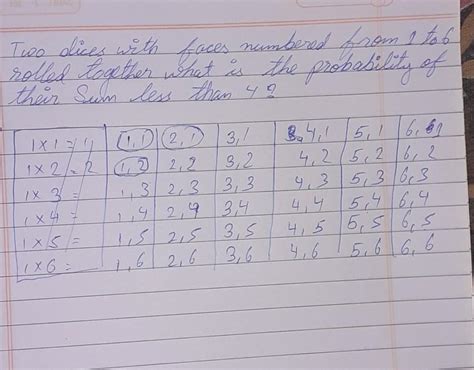 Two dices with faces numbered from 1 to 6
rolled together what is the probability of
their Sum less than 4?
1x1=1 1,1 2,1 3,1 4,1 5,1 6,1
1x2=2 1,2 2,2 3,2 4,2 5,2 6,2
1x3= 1,3 2,3 3,3 4,3 5,3 6,3
1x4= 1,4 2,4 3,4 4,4 5,4 6,4
1x5= 1,5 2,5 3,5 4,5 5,5 6,5
1x6= 1,6 2,6 3,6 4,6 5,6 6,6